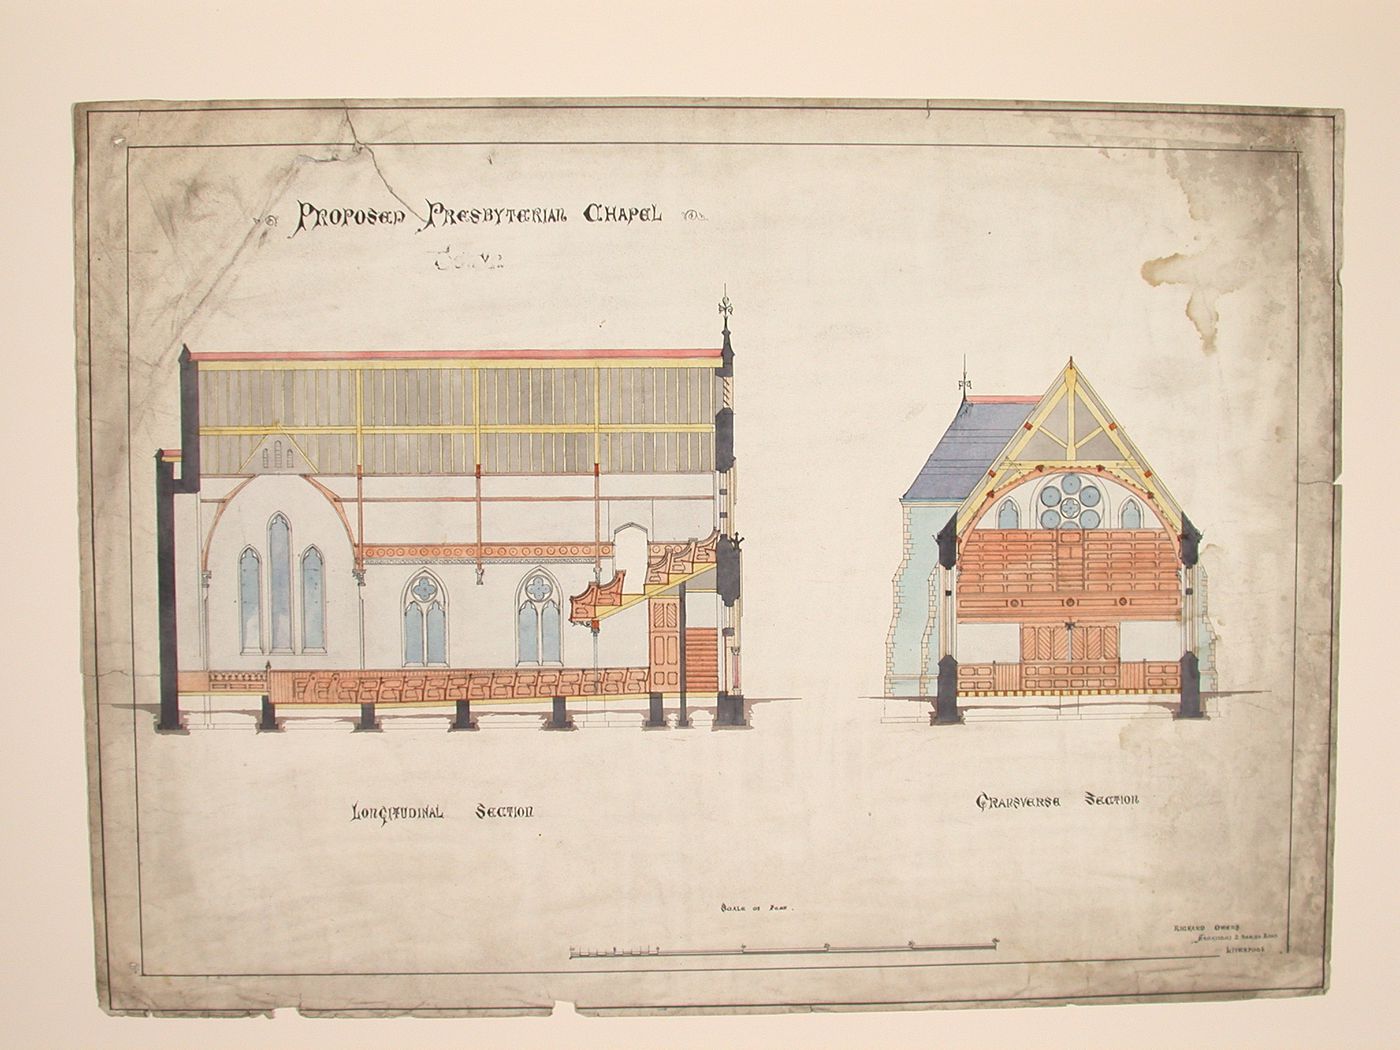 Proposed Presbyterian Chapel
Longitudinal Section
Transverse Section
Scale of Feet.
Richard Owens
Liverpool